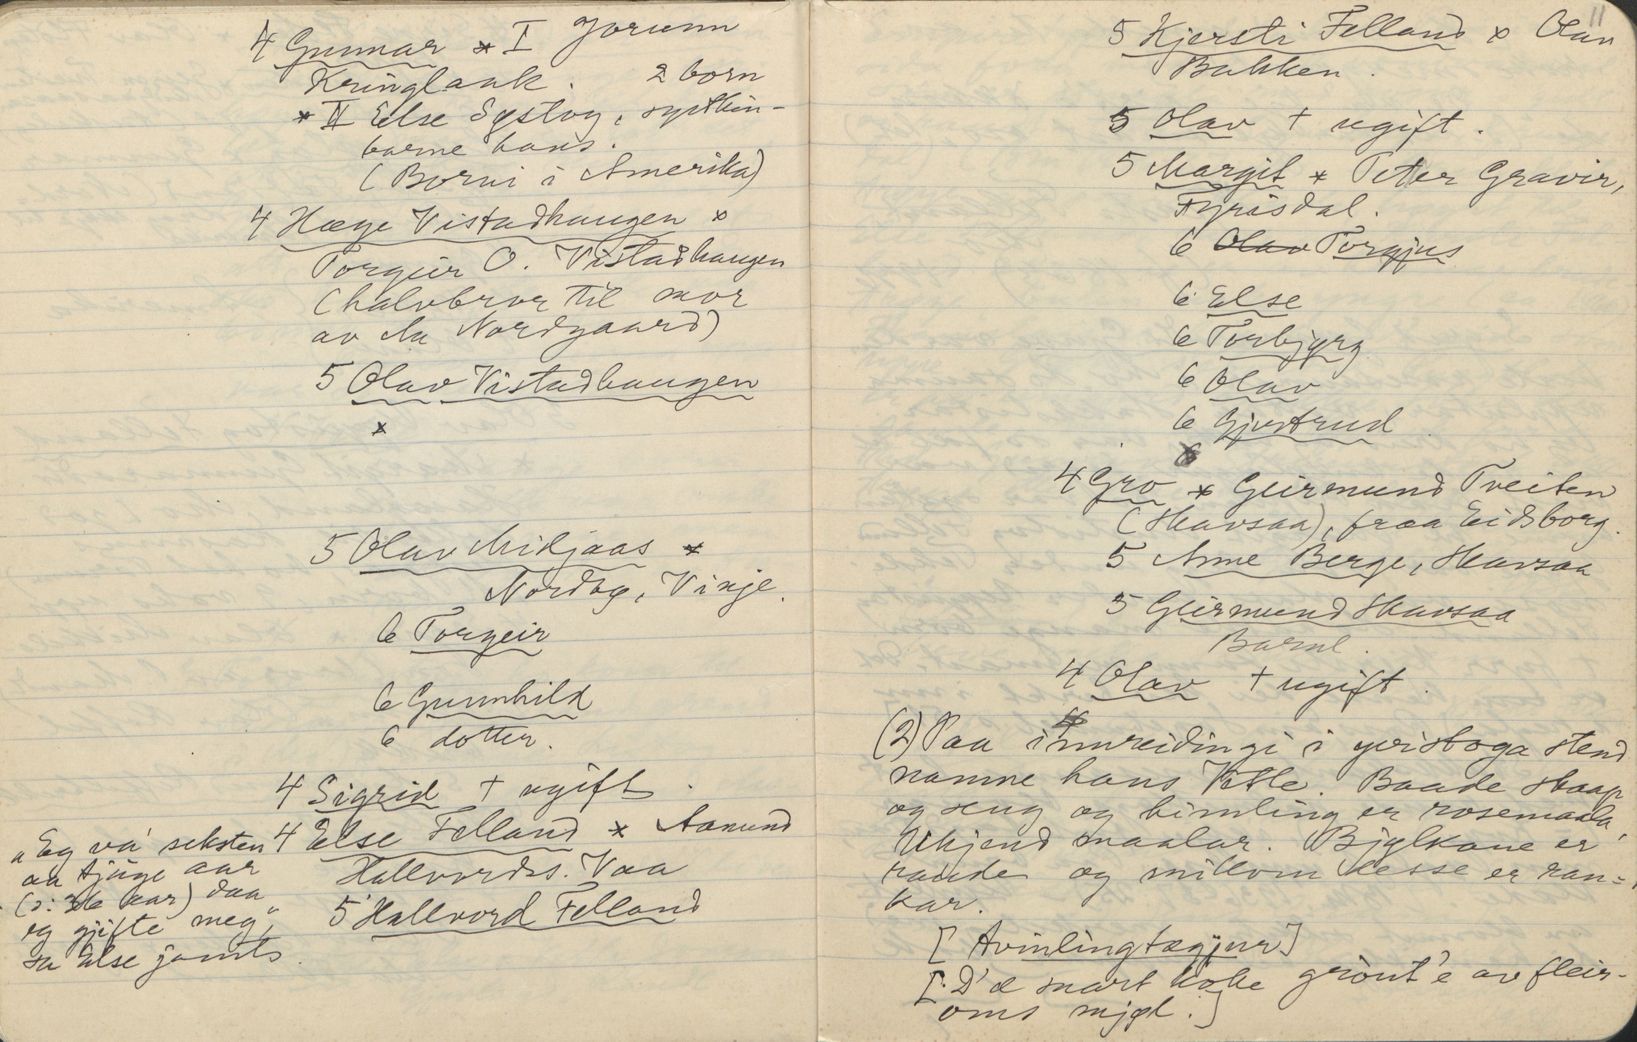 4 Gunnar * I Jorunn
Kringlaak. 2 born
* II Else Systog, systkin-
barne hans.
(Borni i Amerika)
4 Hæge Vistadhaugen *
Torgeir O. Vistadhaugen
(halvbror til mor
av Aa Nordgaard)
5 Olav Vistadhaugen
*
5 Olav Midjaas *
Nordbø, Vinje.
6 Torgeir
6 Gunnhild
6 dotter.
4 Sigrid + ugift.
4 Else Felland * Aanund
Hallvords. Vaa
5 Hallvord Felland
"Eg va' seksten
aa tjuge aar
(o: 36 aar) daa
eg gjifte meg",
sa Else jamts.
11
5 Kjersti Felland * Olav
Bakken.
5 Olav + ugift.
5 Margit * Peter Gravir,
Fyrisdal.
6 Olav Torgjus
6 Else
6 Torbjørg
6 Olav
6 Gjertrud
4 Gro * Geirmund Tveiten
(Skavsaa), fraa Eidsborg.
5 Anne Berge, Skavsaa
5 Geirmund Skavsaa
Barnl.
4 Olav + ugift.
(2) Paa innreidingi i øvistoga stend
namne hans Vetle. Baade skaap
og seng og himling er rosemaala,
Ukjend maalar. Bjelkane er
raude og millom desse er ran-
kar.
[Avinlingtægjur]
[D'æ snart koke graut'e av fleir-
oms mjøl.]